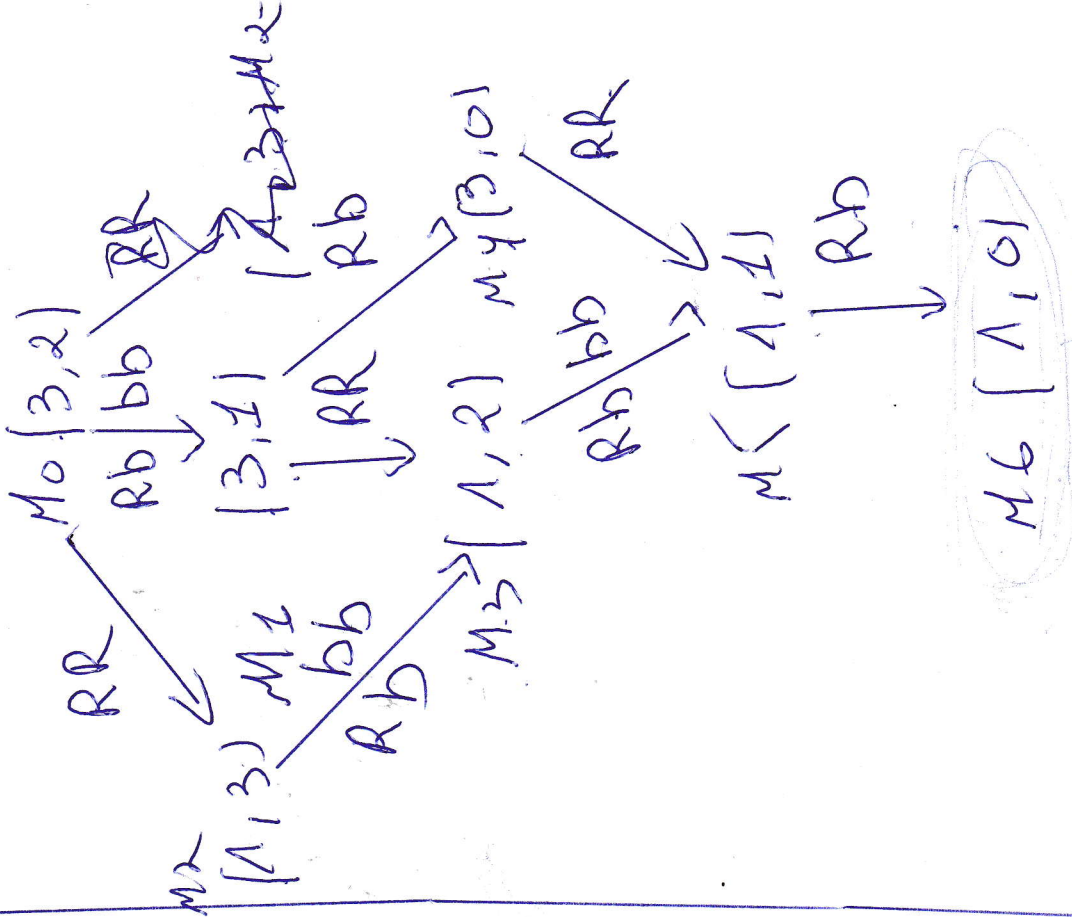 M0 (3,2)
RR
Rb bb
RR
M2
(1,3)
M1
(3,1)
Rb bb
RR
Rb
M3 (1,2)
M4 (3,0)
Rb bb
RR
M5 (1,1)
Rb
M6 (1,0)